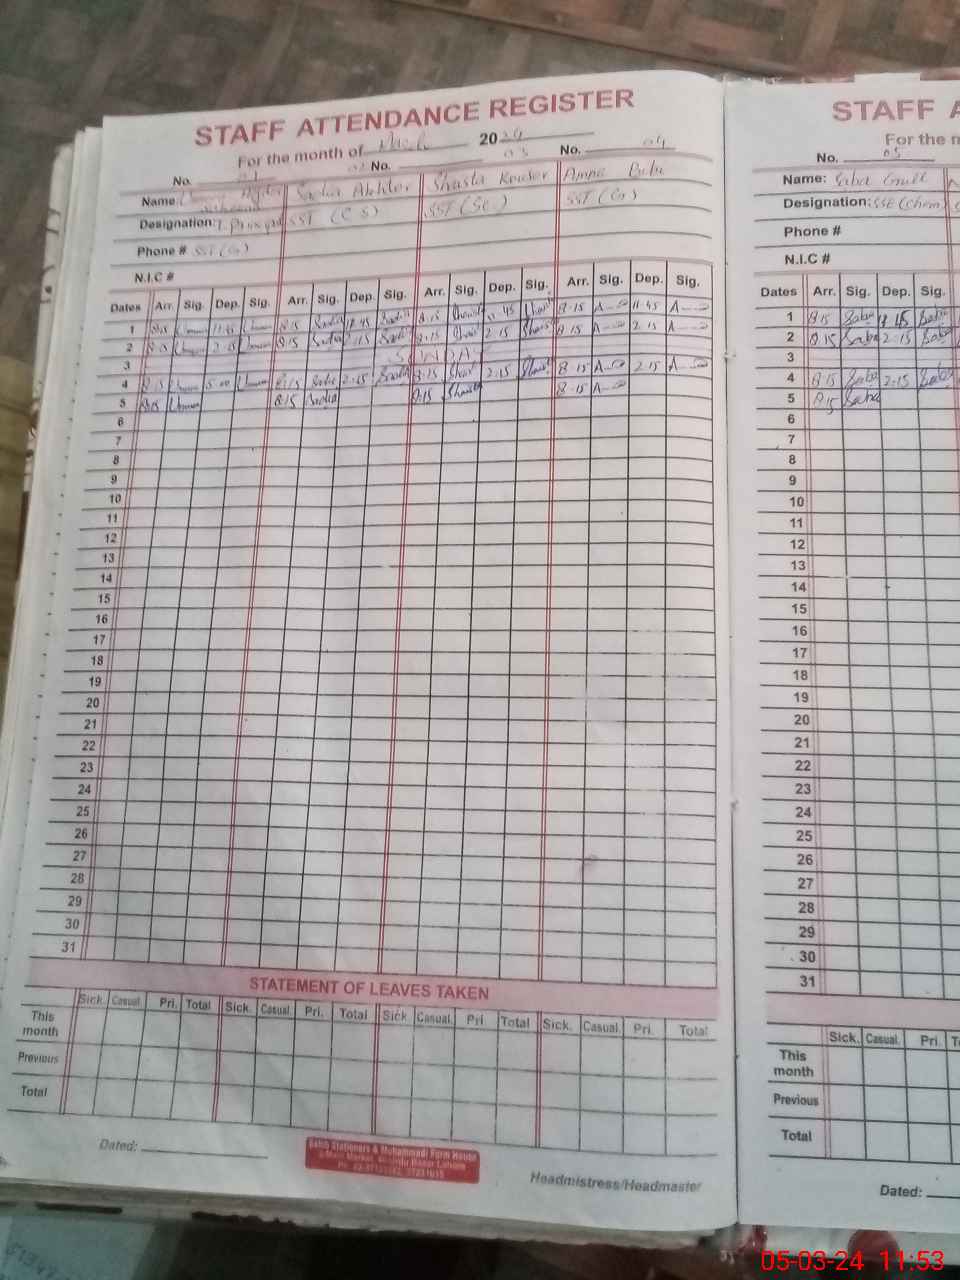 STAFF ATTENDANCE REGISTER
For the month of March 2024
No. 01 02 No. 03 No. 04
Name Sadia Akhter Shasta Kousar Amna Bibi
Designation: I. Principal SST (CS) SST (Sc.) SST (G)
Phone # SST (G)
N.I.C #
Dates Arr. Sig. Dep. Sig. Arr. Sig. Dep. Sig. Arr. Sig. Dep. Sig. Arr. Sig. Dep. Sig.
1 8:15 11:45 8:15 Sadia 11:45 Sadia 8:15 11:45 8:15 A 11:45 A
2 8:15 2:15 8:15 Sadia 2:15 Sadia 8:15 2:15 8:15 A 2:15 A
3 SUNDAY
4 8:15 5:00 8:15 Sadia 2:15 Sadia 8:15 2:15 8:15 A 2:15 A
5 8:15 8:15 Sadia 8:15 8:15 A
6
7
8
9
10
11
12
13
14
15
16
17
18
19
20
21
22
23
24
25
26
27
28
29
30
31
STATEMENT OF LEAVES TAKEN
Sick. Casual. Pri. Total Sick. Casual. Pri. Total Sick Casual. Pri Total Sick. Casual. Pri. Total
This month
Previous
Total
Dated:
Headmistress/Headmaster
STAFF A
For the m
No. 05
Name: Saba Gull
Designation: SSE (Chem)
Phone #
N.I.C #
Dates Arr. Sig. Dep. Sig.
1 8:15 Saba 11:45 Saba
2 8:15 Saba 2:15 Saba
3
4 8:15 Saba 2:15 Saba
5 8:15 Saba
6
7
8
9
10
11
12
13
14
15
16
17
18
19
20
21
22
23
24
25
26
27
28
29
30
31
Sick. Casual. Pri. T
This month
Previous
Total
Dated:
05-03-24 11:53